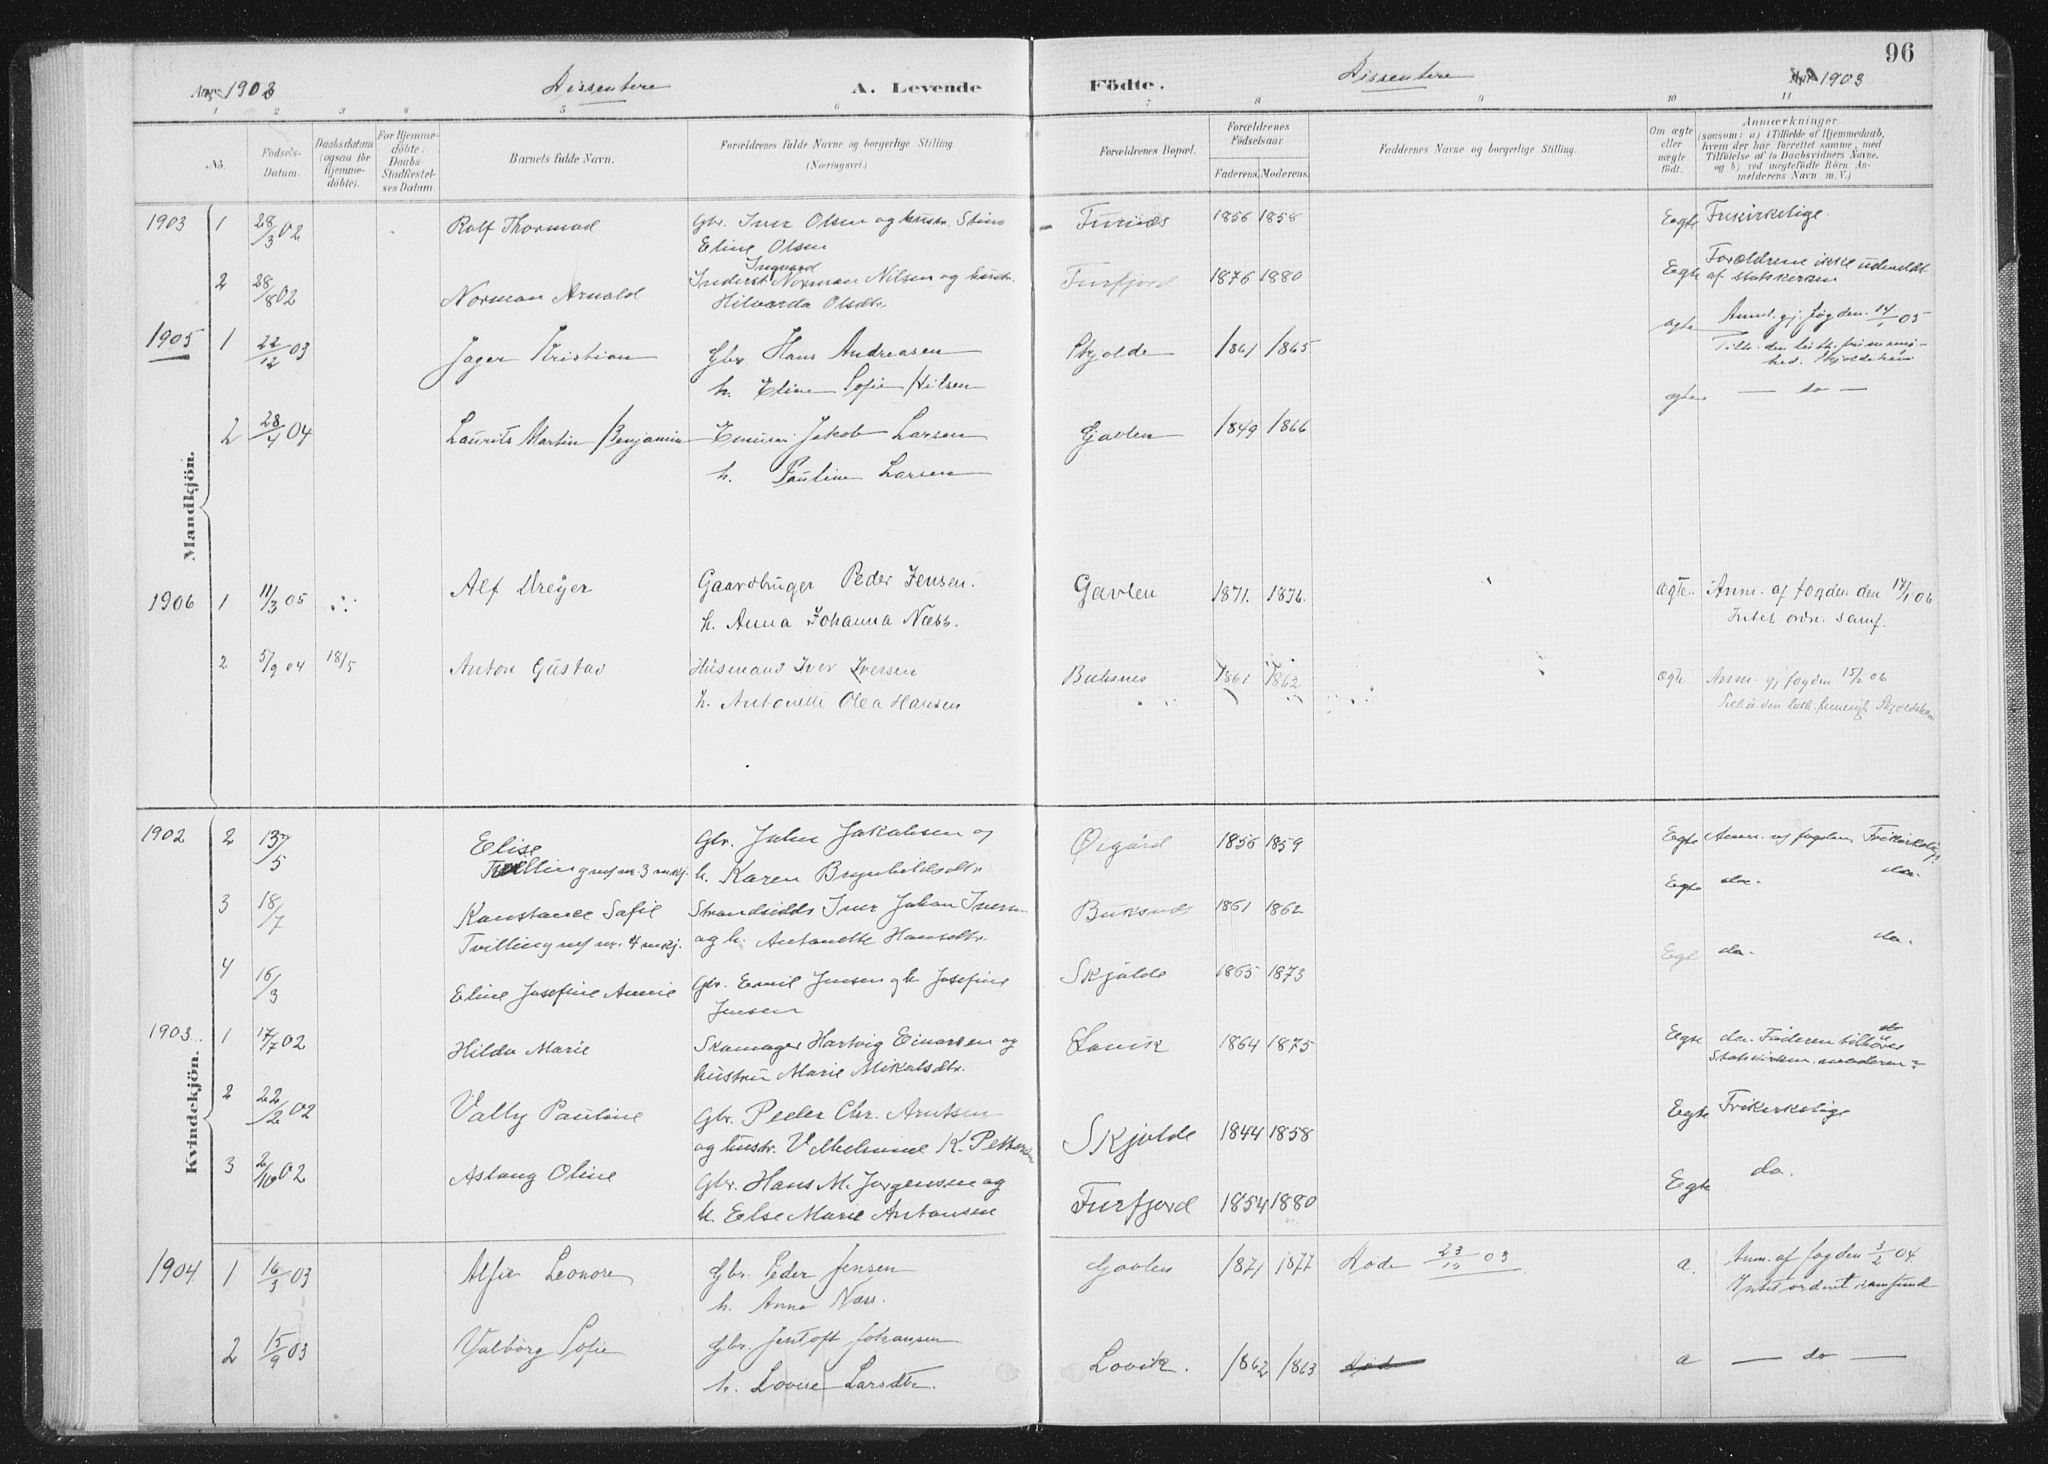 96
Aar 1903 Dissentere A. Levende
Födte. Dissentere Aar 1903
1 2 3 4 5 6 7 8 9 10 11
No.
Födsels-Datum.
Daabsdatum (ogsaa for hjemme-döbte).
For Hjemme-döbte: Daabs-Stadfæstel-ses Datum.
Barnets fulde Navn.
Forældrenes fulde Navne og borgerlige Stilling.
(Næringsvei)
Forældrenes Bopæl.
Forældrenes Födselsaar.
Faderens. Moderens.
Faddernes Navne og borgerlige Stilling.
Om ægte eller uægte födt.
Anmærkninger
(saasom: a) i Tilfælde af Hjemmedaab,
hvem der har forrettet samme, med
Tilföielse af to Daabsvidners Navne,
og b) ved uægtefödte Börn An-
melderens Navn m. V.)
Mandkjön.
1903 1 28/3 02 Rolf Thormod Gbr. Iver Olsen og hustr. Stine Furnæs 1856 1858 Egte Frikirkelige
Eline Olsen
Ingvard
2 28/8 02 Norman Arnold Inderst Norman Nilsen og hustr. Furfjord 1876 1880 Egte Forældrene ikke udmeldt
Hilvarda Olsdtr. af statskirken
1905 1 22/12 03 Jager Kristian Gbr Hans Andreasen Skjolde 1861 1865 ægte Anm. gj. fogden 14/1 05
h. Eline Sofie Nilsen Tilh. den luth. frimenig-
hed. Skjoldehavn
2 28/4 04 Laurits Martin Benjamin Jakob Larsen Gavlen 1849 1866 ægte — do —
h. Pauline Larsen
1906 1 11/3 05 Alf Dreyer Gaardbruger Peder Jensen. Gavlen 1871. 1876. ægte.. Anm. af fogden den 17/1 06
h. Anna Johanna Næss. Intet ordn. samf.
2 5/9 04 18/5 Anton Gustav Husmand Iver Iversen Buksnes 1861 1862 ægte Anm. gj fogden 15/2 06
h. Antonette Olea Hansen Tilhö den luth. frimenigh Skjoldehavn
Kvindekjön.
1902 2 13/5 Elise Gbr. Julius Jakobsen og Øigård 1856 1859 Egte Anm. v/ fogden Frikirkelige
Tvilling m/ nr. 3 mkj. h. Karen Brynhildsdtr.
3 18/7 Konstance Sofie Strandsidds Iver Johan Iversen Buksnes 1861 1862 Egte do. do.
Tvilling m/ nr. 4 mkj. og h. Antonette Hansdtr.
4 16/3 Eline Josefine Annie Gbr. Emil Jensen og h Josefine Skjolde 1865 1873 Egte do. do.
Jensen
1903.. 1 17/7 02 Hilda Marie Skomager Hartvig Einarsen og Lovik 1864 1875 Egte do. Faderen tilhører
hustru Marie Mikalsdtr. Statskirken. moderen ?
2 22/2 02 Vally Pauline Gbr. Peder Chr. Arntsen Skjolde 1844 1858 Egte Frikirkelige
og hustr. Vilhelmine K. Pettersen
3 2/10 02 Aslaug Oline Gbr. Hans M. Jørgensen og Furfjord 1854 1880 Egte do.
h. Else Marie Antonsen
1904 1 16/3 03 Alfie Leonore Gbr. Peder Jensen Gavlen 1871 1877 Död 23/12 03 a. Anm. af fogden 3/2 04.
h. Anna Næss. Intet ordnet samfund
2 15/9 03 Valborg Sofie Gbr. Jentoft Johansen Lovik. 1862 1863 a — do —
h. Lovise Larsdtr.